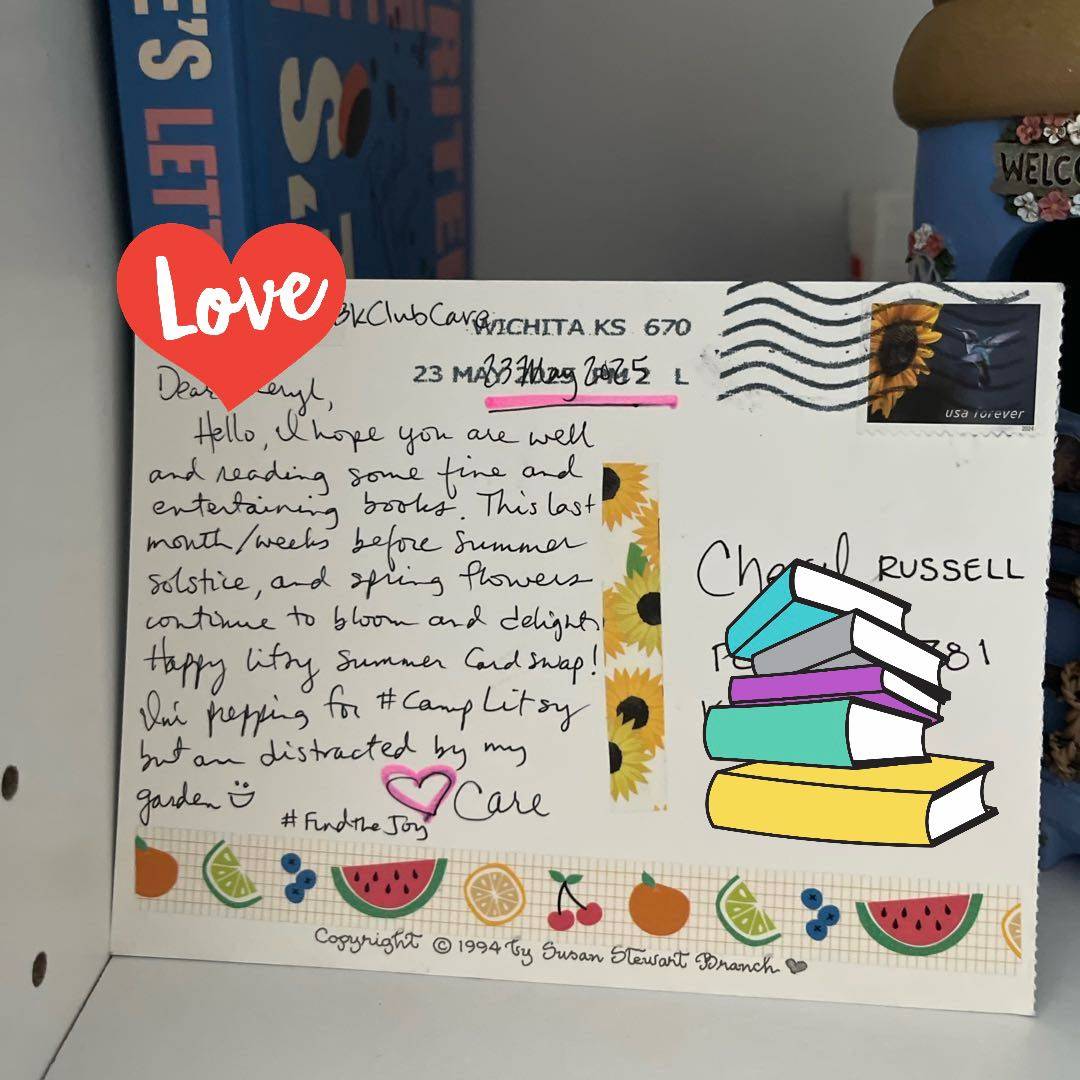 E'S LETT
WRITE
Love
BkClubCare
WICHITA KS 670
23 MAY 2025 PM 2 L
23 May 2025
usa forever
2024
WELCO
Dear Cheryl,
Hello, I hope you are well
and reading some fine and
entertaining books. This last
month/weeks before summer
solstice, and spring flowers
continue to bloom and delight.
Happy Litsy Summer Card Swap!
I'm prepping for #CampLitsy
but am distracted by my
garden
Care
#FindtheJoy
Cheryl RUSSELL
81
Copyright © 1994 by Susan Stewart Branch